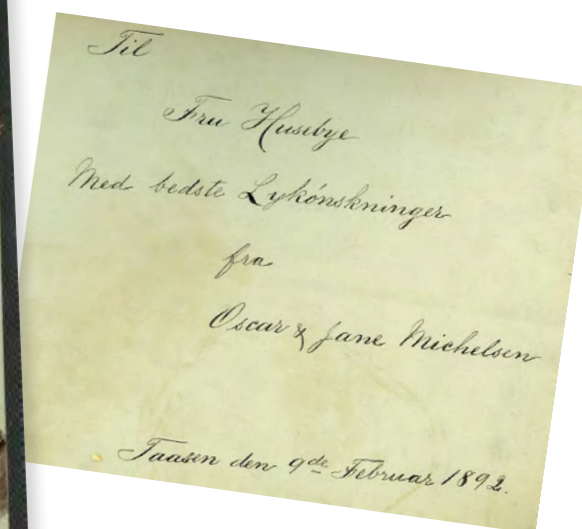 Til
Fru Husebye
Med bedste Lykónskninger
fra
Oscar & Jane Michelsen
Taasen den 9de Februar 1892.